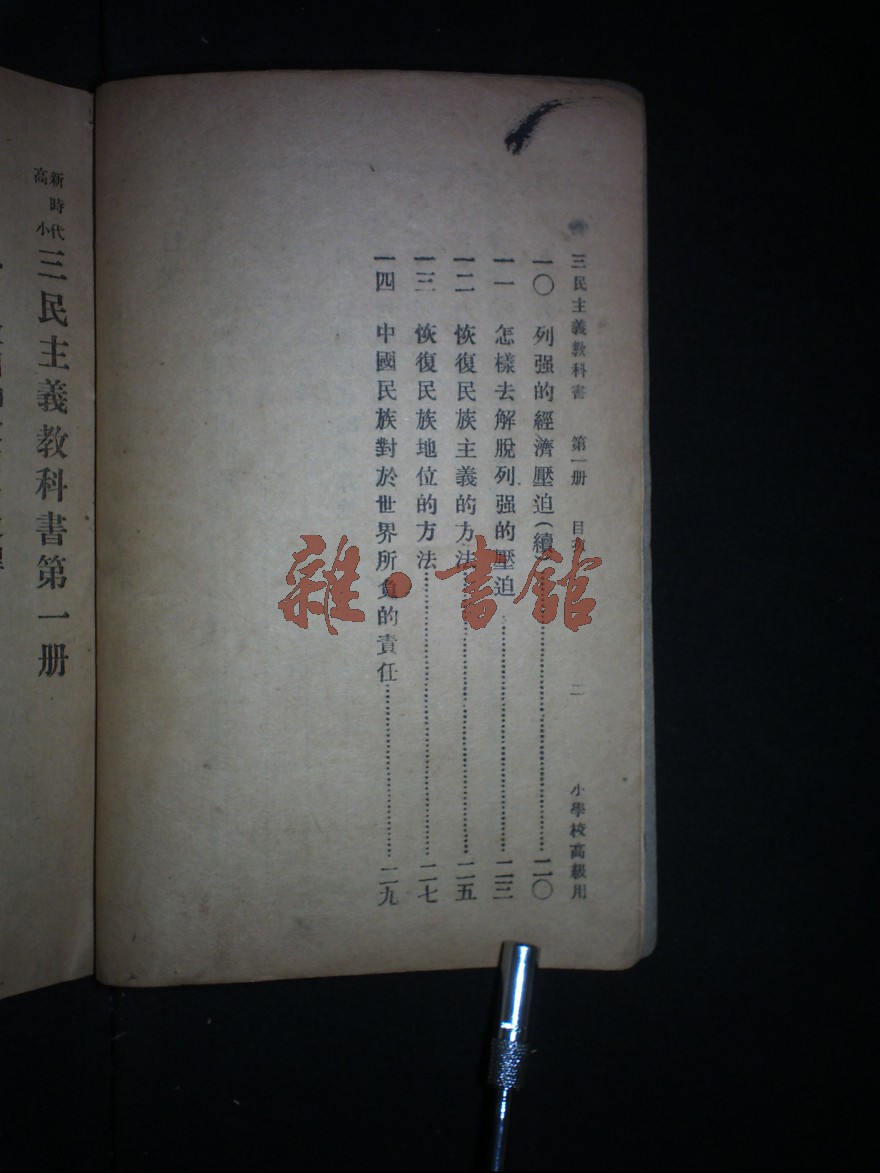 三民主義教科書 第一册 目 二 小學校高級用
一〇 列强的經濟壓迫(續)…………二〇
一一 怎樣去解脫列强的壓迫…………二三
一二 恢復民族主義的方法…………二五
一三 恢復民族地位的方法…………二七
一四 中國民族對於世界所負的責任…………二九
新時代
高小
三民主義教科書第一册
雜·書館